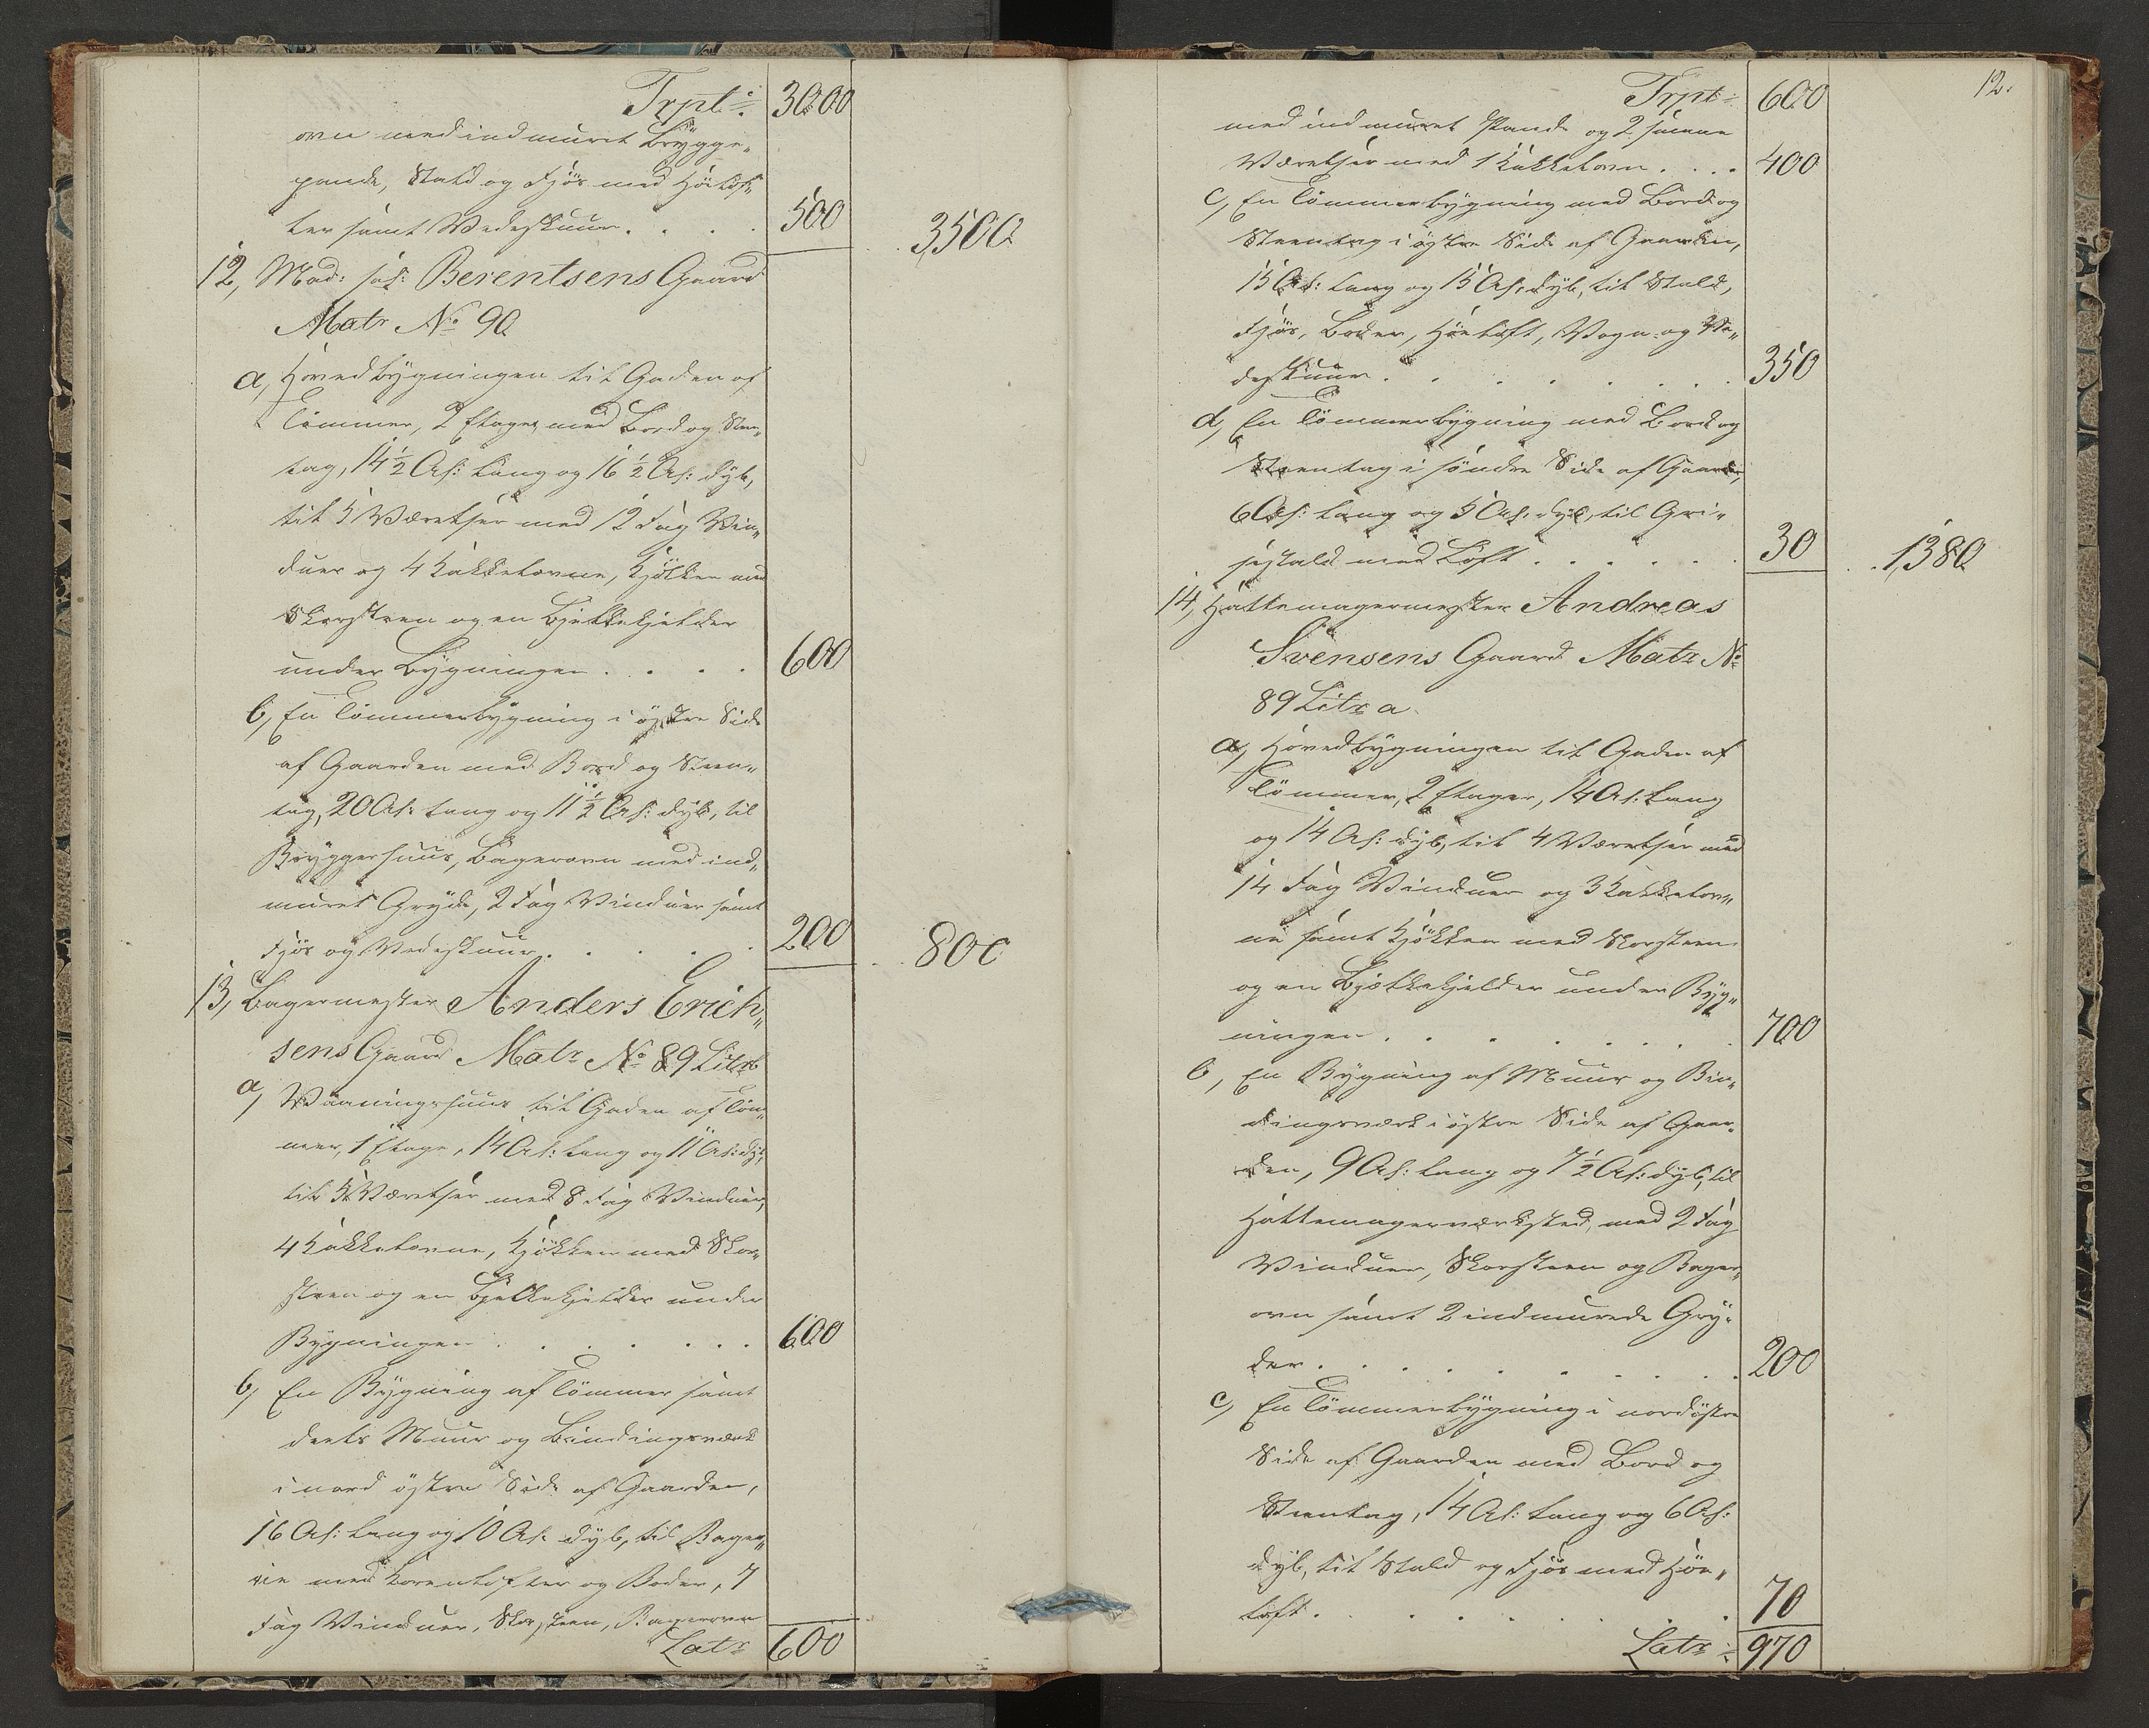 Trpt: 3000
ovn med indmuret Brygge-
pande, Stald og Fjös med Höelof-
ter samt Vedeskuur . . . . 500 3,500
12, Mad: Berentsens Gaard
Matr No 90
a, Hovedbygningen til Gaden af
Tömmer, 2 Etager, med Bord og Steen-
tag, 14½ Al: lang og 16½ Al: dyb,
til 5 Værelser med 12 Fag Vin-
duer og 4 Kakkelovne, Kjökken med
Skorsteen og en Bjelkekjelder
under Bygningen . . . . 600
b, En Tömmerbygning i östre Side
af Gaarden med Bord og Steen-
tag, 20 Al: lang og 11½ Al: dyb, til
Bryggerhuus, Bagerovn med ind-
muret Gryde, 2 Fag Vinduer samt
Fjös og Vedeskuur . . . . . 200 800
13, Bagermester Anders Erich-
sens Gaard Matr No 89 Litr b
a, Vaaningshuus til Gaden af Töm-
mer, 1 Etage, 14 Al: lang og 11 Al: dyb,
til 5 Værelser med 8 Fag Vinduer,
4 Kakkelovne, Kjökken med Skor-
steen og en Bjelkekjelder under
Bygningen . . . . . . . 600
b, En Bygning af Tömmer samt
deels Muur og Bindingsværk
i nord östre Side af Gaarden,
16 Al: lang og 10 Al: dyb, til Bage-
rie med Kornlofter og Boder, 7
Fag Vinduer, Skorsteen, Bagerovn
Latr 600
12.
Trpt: 600
med indmuret Pande og 2 smaae
Værelser med 1 Kakkelovn . . . . 400
c, En Tömmerbygning med Bord og
Steentag i östre Side af Gaarden,
15 Al: lang og 15 Al: dyb, til Stald,
Fjös, Boder, Höeloft, Vogn og Ve-
deskuur . . . . . . . 350
d, En Tömmerbygning med Bord og
Steentag i söndre Side af Gaarden,
6 Al: lang og 5 Al: dyb, til Gri-
sestald med Loft . . . . . 30 1,380
14, Hattemagermester Andreas
Svensens Gaard Matr No
89 Litr a
a, Hovedbygningen til Gaden af
Tömmer, 2 Etager, 14 Al: lang
og 14 Al: dyb, til 4 Værelser med
14 Fag Vinduer og 3 Kakkelov-
ne samt Kjökken med Skorsteen
og en Bjelkekjelder under Byg-
ningen . . . . . . . 700
b, En Bygning af Muur og Bin-
dingsværk i östre Side af Gaar-
den, 9 Al: lang og 7½ Al: dyb, til
Hattemagerværksted, med 2 Fag
Vinduer, Skorsteen og Bager-
ovn samt 2 indmurede Gry-
der . . . . . . . . 200
c, En Tömmerbygning i nordöstre
Side af Gaarden med Bord og
Steentag, 14 Al: lang og 6 Al:
dyb, til Stald og Fjös med Höe-
loft . . . . . . . . 70
Latr: 970